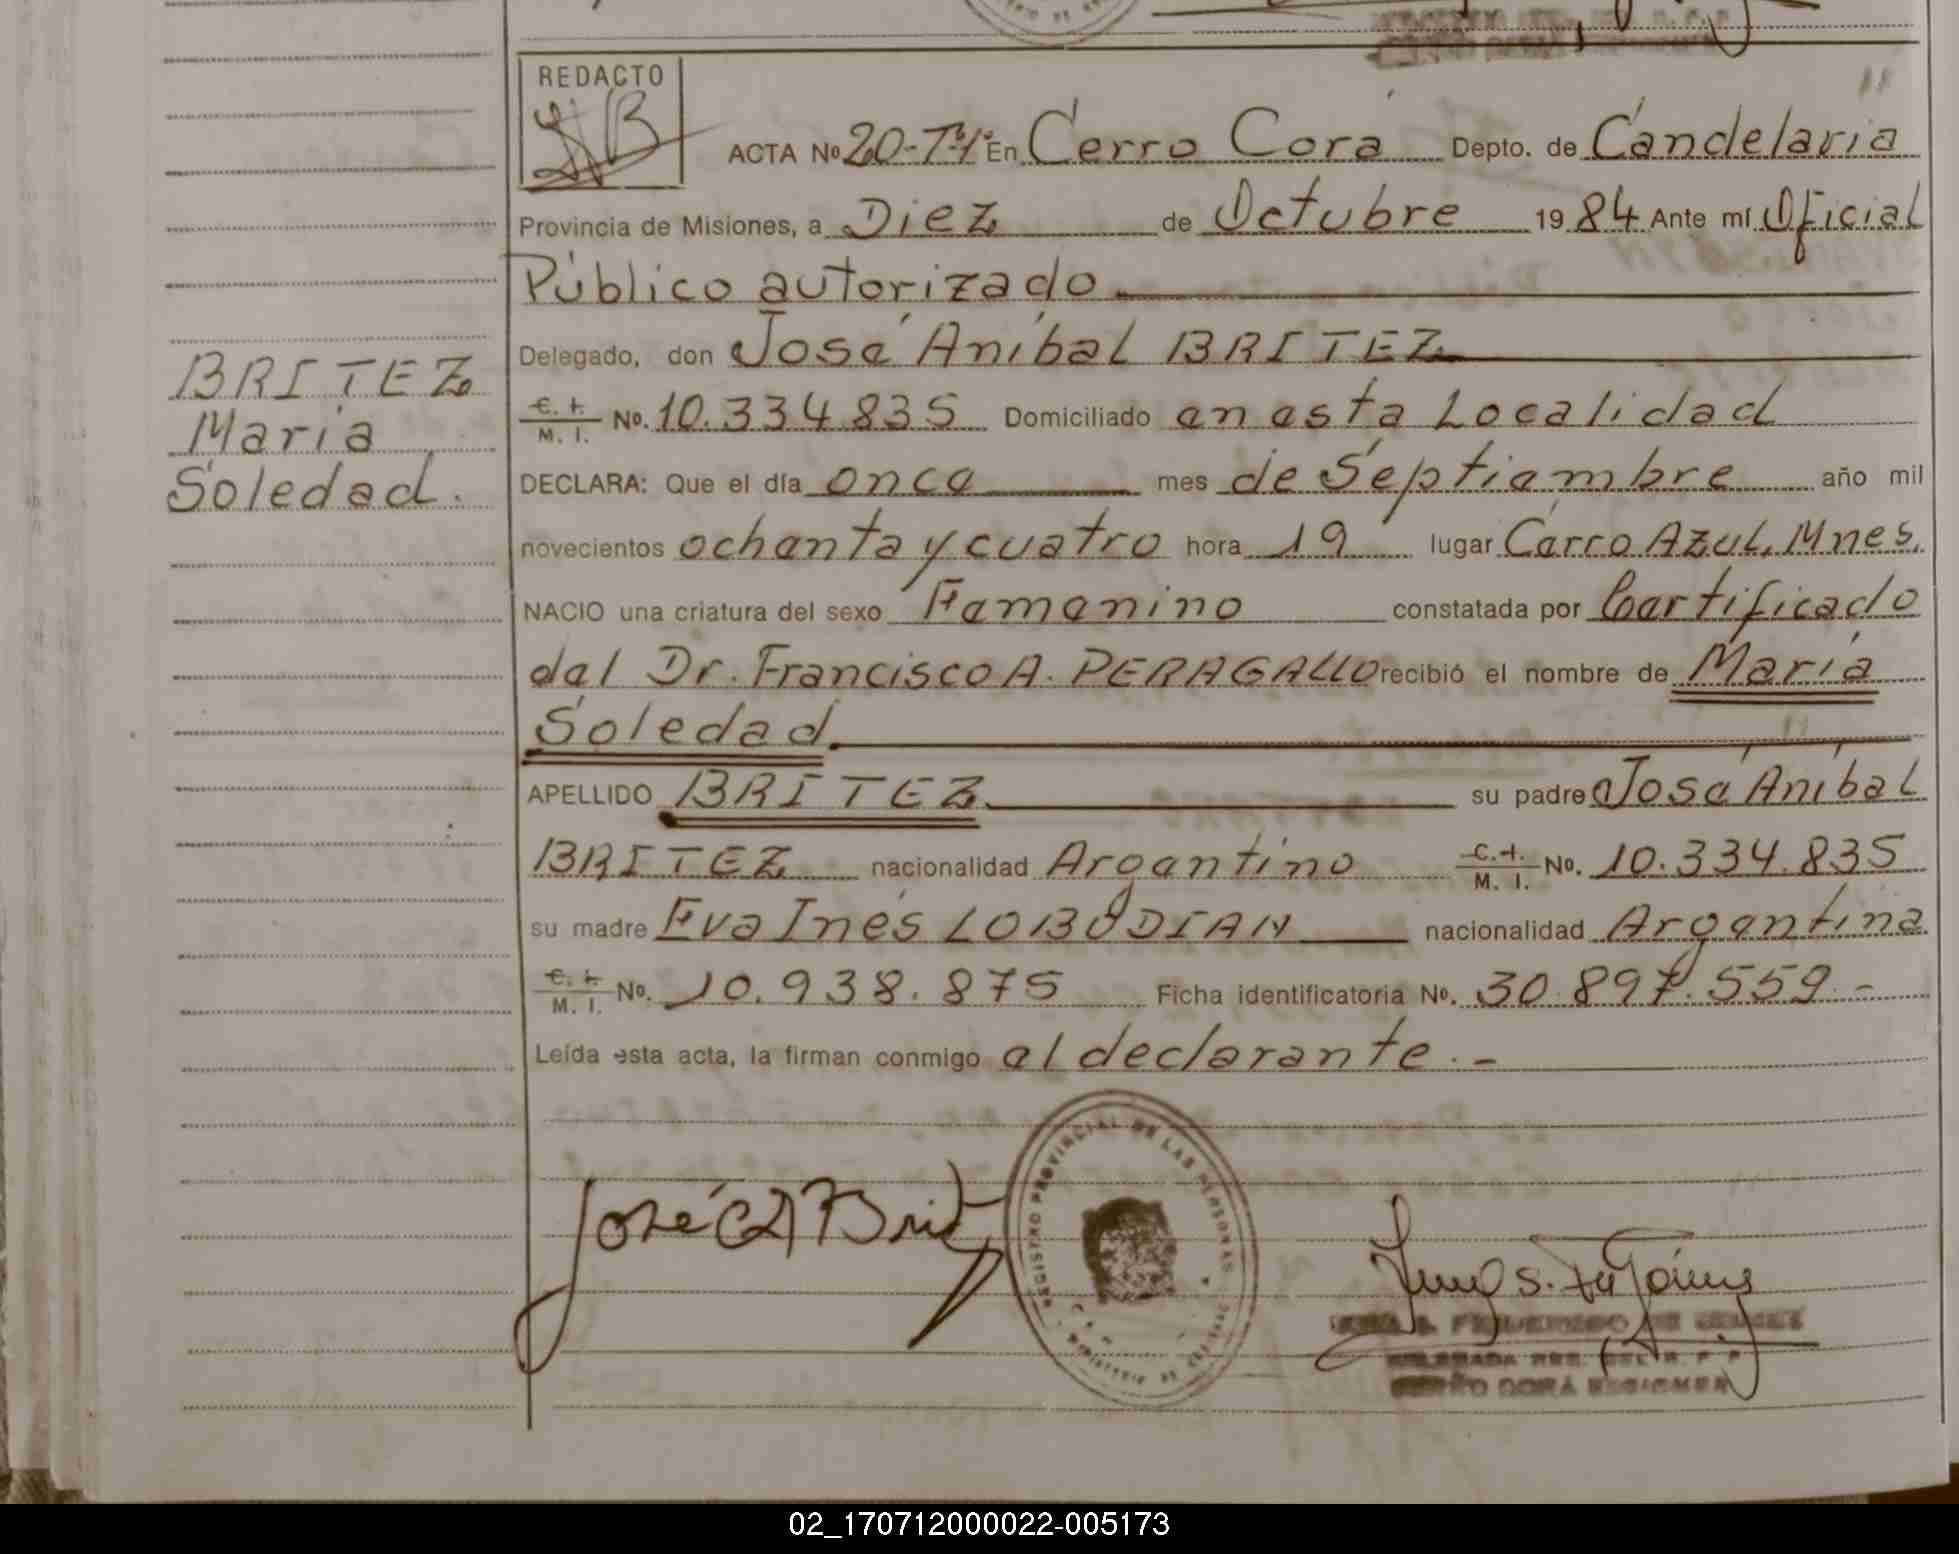 REDACTO
ACTA No 20-Tº1º En Cerro Corá Depto. de Candelaria
Provincia de Misiones, a Diez de Octubre 1984 Ante mí Oficial
Público autorizado
Delegado, don José Aníbal BRITEZ
C. I. M. I. No. 10.334.835 Domiciliado en esta Localidad
BRITEZ
María
Soledad.
DECLARA: Que el día once mes de Septiembre año mil
novecientos ochenta y cuatro hora 19 lugar Cerro Azul, Mnes.
NACIO una criatura del sexo Femenino constatada por Certificado
del Dr. Francisco A. PERAGALLO recibió el nombre de María
Soledad
APELLIDO BRITEZ su padre José Aníbal
BRITEZ nacionalidad Argentino C.I. M. I. No. 10.334.835
su madre Eva Inés LOBODIAN nacionalidad Argentina
C. I. M. I. No. 10.938.875 Ficha identificatoria No. 30.897.559.-
Leída esta acta, la firman conmigo el declarante.-
José A Brit
REGISTRO PROVINCIAL DE LAS PERSONAS
DELEGADA RES. DEL R. P. P.
CERRO CORÁ MISIONES
02_170712000022-005173